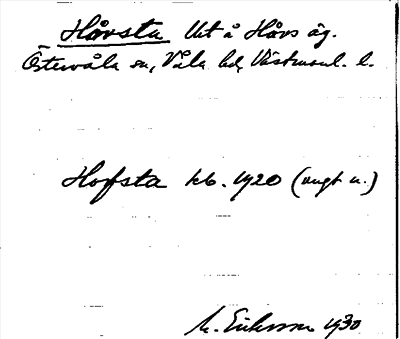 Håvsta Ut å Håvs äg.
Östervåla sn, Våla hd, Västmanl. l.
Hofsta kb. 1920 (angt u.)
M. Eriksson 1930